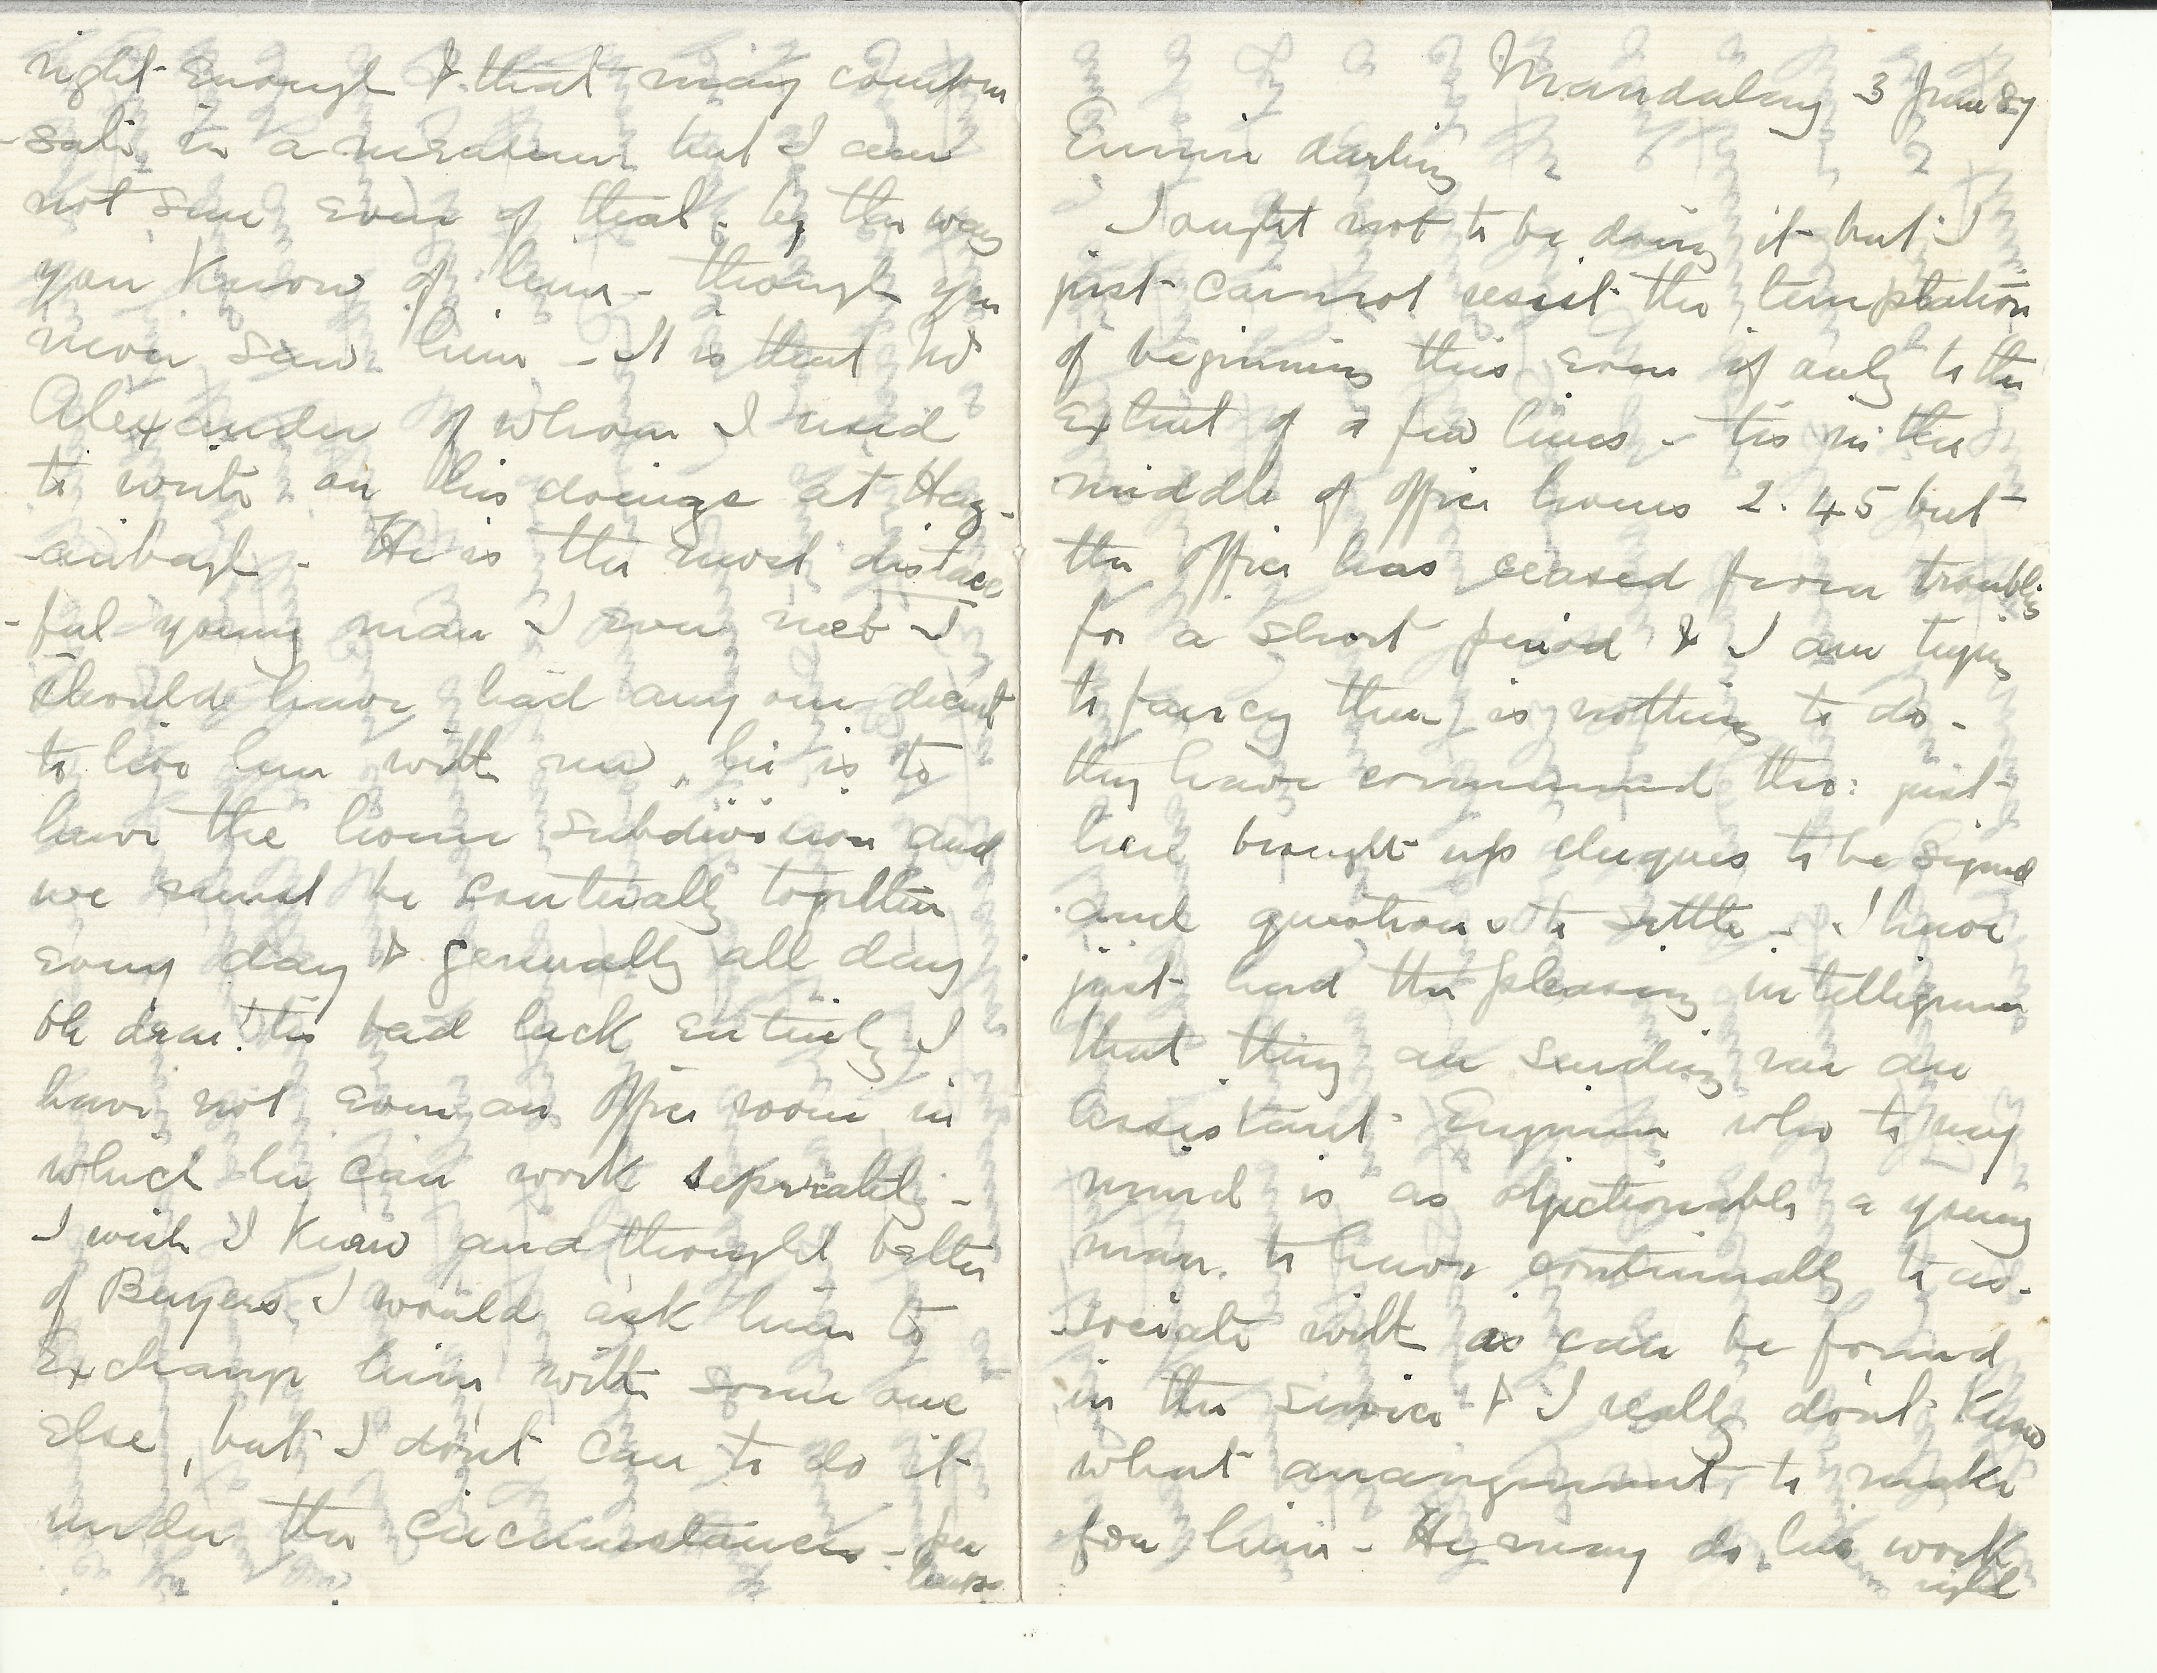 Mandalay 3 June 87
Emmie darling
I ought not to be doing it but I
just cannot resist the temptation
of beginning this even if only to the
extent of a few lines - tis in the
middle of office hours 2.45 but
the office has ceased from troubling
for a short period & I am trying
to fancy there is nothing to do -
they have commenced tho: just
here brought up cheques to be signed
and questions to settle - I have
just had the pleasing intelligence
that they are sending me an
Assistant Engineer who to my
mind is as objectionable a young
man to have continually to as-
-sociate with as can be found
in the service & I really don't know
what arrangement to make
for him - He may do his work
right
right enough & that may compen
-sate in a measure but I am
not sure even of that - by the way
you know of him - though you
never saw him - It is that
Alexander of whom I used
to write on his doings at Haz-
-aribagh - He is the most distaste
-ful young man I ever met I
should have had any one decent
to live here with me, he is to
have the home subdivision and
we must be contually together
every day & generally all day
oh dear! tis bad luck entirely I
have not even an office room in
which he can work seprately -
I wish I knew and thought better
of Buyers I would ask him to
exchange him with some one
else, but I don't care to do it
under the circumstances - per
haps